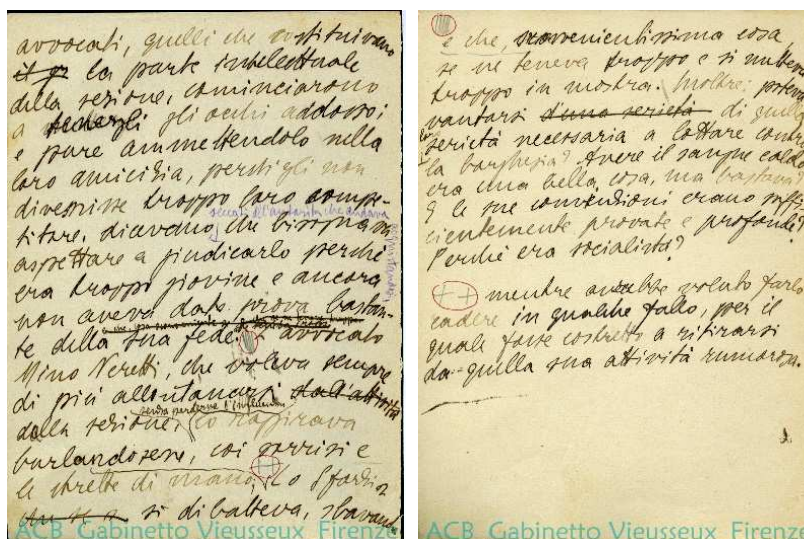 avvocati, quelli che costituivano
il pr la parte intellettuale
della sezione, cominciarono
a tenergli gli occhi addosso;
e pure ammettendolo nella
loro amicizia, perché gli non
divenisse troppo loro compe-
titore, dicevano che bisognava
aspettare a giudicarlo perché
era troppo giovine e ancora
non aveva dato prova bastan-
te della sua fede. L'avvocato
Mino Neretti, che voleva sempre
di più allontanarsi dall'attività
dalla sezione,
senza perdere l'influenza
lo raffirava
burlandosene, coi sorrisi e
le strette di mano;
si dibatteva,
ACB Gabinetto Vieusseux Firenze
e che, sconvenientissima cosa,
se ne teneva troppo e si metteva
troppo in mostra. Inoltre: poteva
vantarsi d'una serietà di quella
serietà necessaria a lottare contro
la borghesia? Avere il sangue caldo
era una bella cosa, ma bastava?
E le sue convinzioni erano suffi-
cientemente provate e profonde?
Perché era socialista?
++ mentre avrebbe voluto farlo
cadere in qualche fallo, per il
quale fosse costretto a ritirarsi
da quella sua attività rumorosa.
ACB Gabinetto Vieusseux Firenze